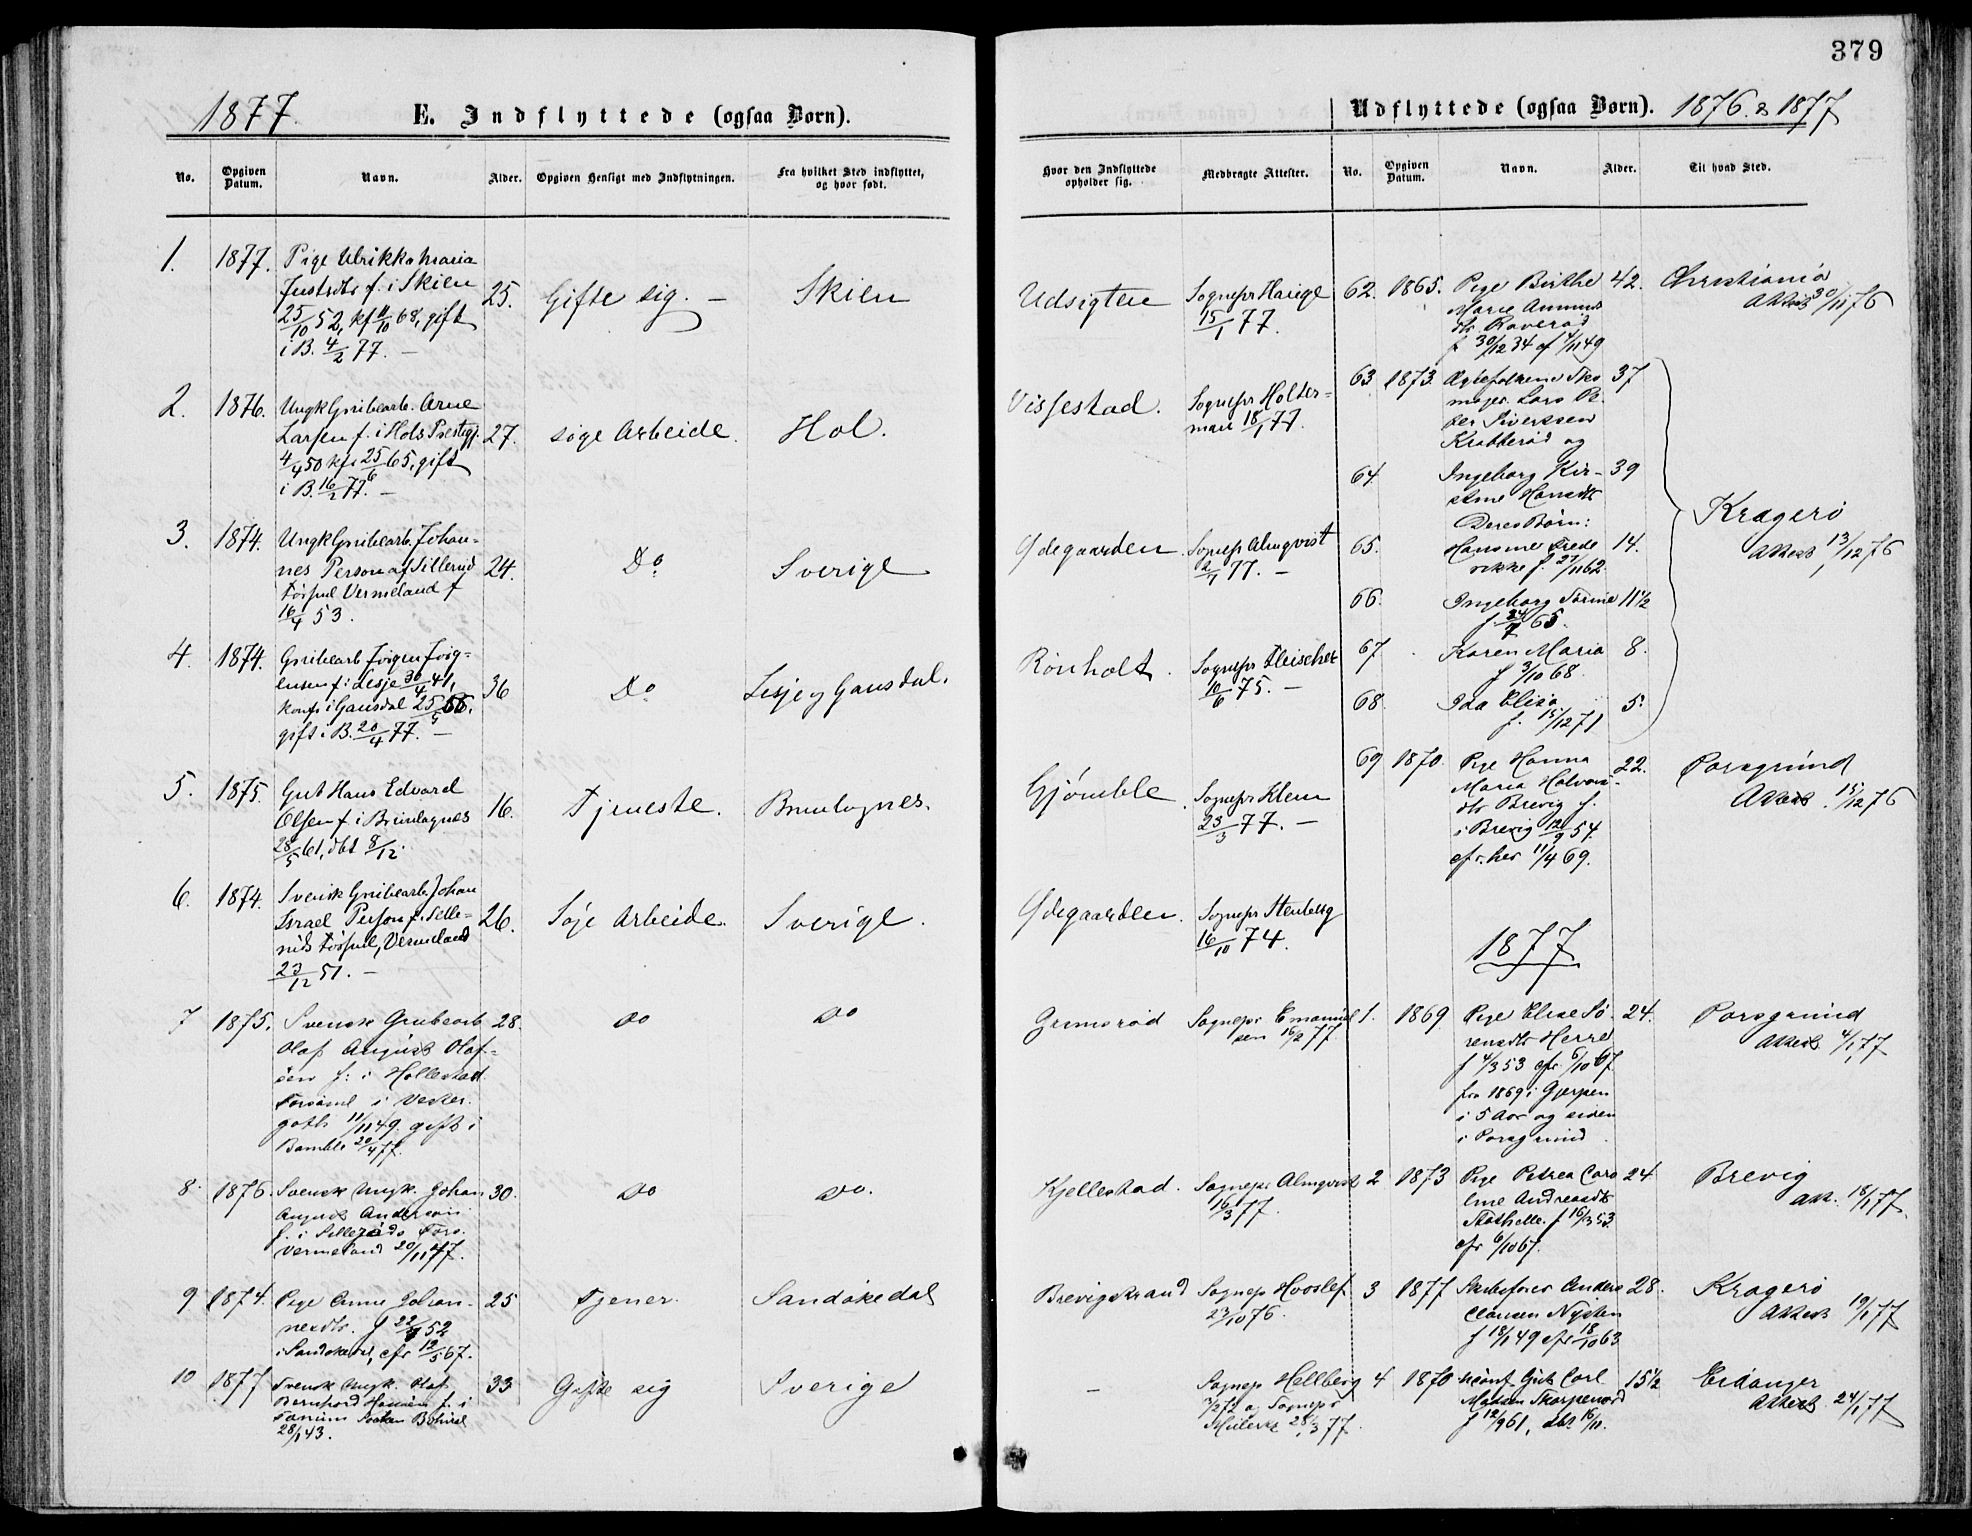 379
1877.
E. Indflyttede (ogsaa Børn).
No.
Opgiven Datum.
Navn.
Alder.
Opgiven Hensigt med Indflytningen.
Fra hvilket Sted indflyttet, og hvor født.
Hvor den Indflyttede opholder sig.
Medbragte Attester.
1.
1877.
Pige Ulrikke Maria
Justdtr f. i Skien
25/10 52, kf 11/10 68, gift
i B. 4/2 77. –
25.
Gifte sig. –
Skien
Udsigten
Sognepr Hauge
15/1 77.
2.
1876.
Ungk Grubearb. Arne
Larsen f. i Hols Prestegj.
4/4 50 kf. 25/6 65, gift
i B. 16/2 77. –
27.
søge Arbeide.
Hol.
Vissestad.
Sognepr Holter-
man 18/1 77.
3.
1874.
Ungk Grubearb. Johan-
nes Person af Sillerud
Forsml Vermeland f
16/4 53.
24.
Do
Sverige
Ødegaarden
Sognepr Almqvist
2/1 77. –
4.
1874.
Grubearb Jørgen Jørg-
ensen f. i Lesje 30/4 41,
konf i Gausdal 25/5 56,
gift i B. 20/4 77. –
36
Do
Lesje og Gausdal.
Rønholt.
Sognepr Fleischer
10/6 75. –
5.
1875.
Gut Hans Edvard
Olsen f i Brunlagnes
28/5 61, dbt 8/12.
16.
Tjeneste.
Brunlagnes.
Gjømble.
Sognepr Klem
23/3 77. –
6.
1874.
Svensk Grubearb. Johan
Israel Person f. Sille-
ruds Forsml, Vermeland
23/12 51. –
26.
Søge Arbeide.
Sverige.
Ødegaarden.
Sognepr Stenberg
16/10 74.
7
1875.
Svensk Grubearb
Olaf August Olaf-
sen f: i Hollestad
Forsaml i Vester-
goth 11/11 49. gift i
Bamble 20/4 77.
28.
Do
Do
Grimsrød
Sognepr Emanuel
sen 16/2 77.
8.
1876.
Svensk Ungk. Johan
August Anderson
f. i Silleruds Fors.
Vermeland 20/11 47.
30.
Do
Do.
Kjellestad.
Sognepr Almqvist
16/3 77.
9
1874.
Pige Anne Johan-
nesdtr. f 22/4 52
i Sandøkedal, cfr 12/5 67.
25
Tjener.
Sandøkedal
Brevigstrand
Sognepr Hvoslef
23/10 76.
10
1877
Svensk Ungk. Olaf
Bernhard Hansen f. i
Tanum Socken Bohusl
28/1 43.
33
Gifte sig
Sverige
–
Sognepr Hellberg
7/2 72 og Sognepr
28/3 77.
Udflyttede (ogsaa Børn). 1876 & 1877
No.
Opgiven Datum.
Navn.
Alder.
Til hvad Sted.
62.
1865.
Pige Birthe
Marie Amunds
dtr Raverød
f 30/12 34 cf 4/11 49
42.
Christiania
Attest 30/11 76
63
1873.
Ægtefolkene Sko-
mager Lars Pe-
ter Sivertsen
Kratterød og
37
64.
Ingeborg Kir-
stine Hansdtr
39
Deres Børn:
65.
Hansine Frede
rikke f. 27/11 62.
14.
66.
Ingeborg Sørine
f. 24/7 65.
11 1/2
67
Karen Maria
f 3/10 68.
8.
68.
Ida Elisa
f. 15/12 71
5.
Kragerø
Attest 13/12 76
69
1870.
Pige Hanna
Maria Halvors-
dtr Brevig f.
i Brevig 12/9 54.
cfr. her 11/4 69.
22.
Porsgrund
Attest. 15/12 76
1877
1.
1869
Pige Elise Sø-
rensdtr Herre
f 4/3 53 cfr 6/10 67
fra 1869 i Gjerpen
i 5 Aar og siden
i Porsgrund.
24.
Porsgrund
Attest. 4/1 77
2
1873
Pige Petrea Caro
line Andreasdtr
Stathelle. f 16/3 53
cfr 6/10 67.
24.
Brevig
Att. 18/1 77.
3
1877
Skibsfører Anders
Clausen Nysten
f 18/1 49 cfr 18/10 63
28.
Kragerø
Attest 19/1 77
4
1870
Ukonf. Gut Carl
Madsen Skarpenord
f 12/9 61, dbt 16/11.
15 1/2
Eidanger
Attest. 24/1 77